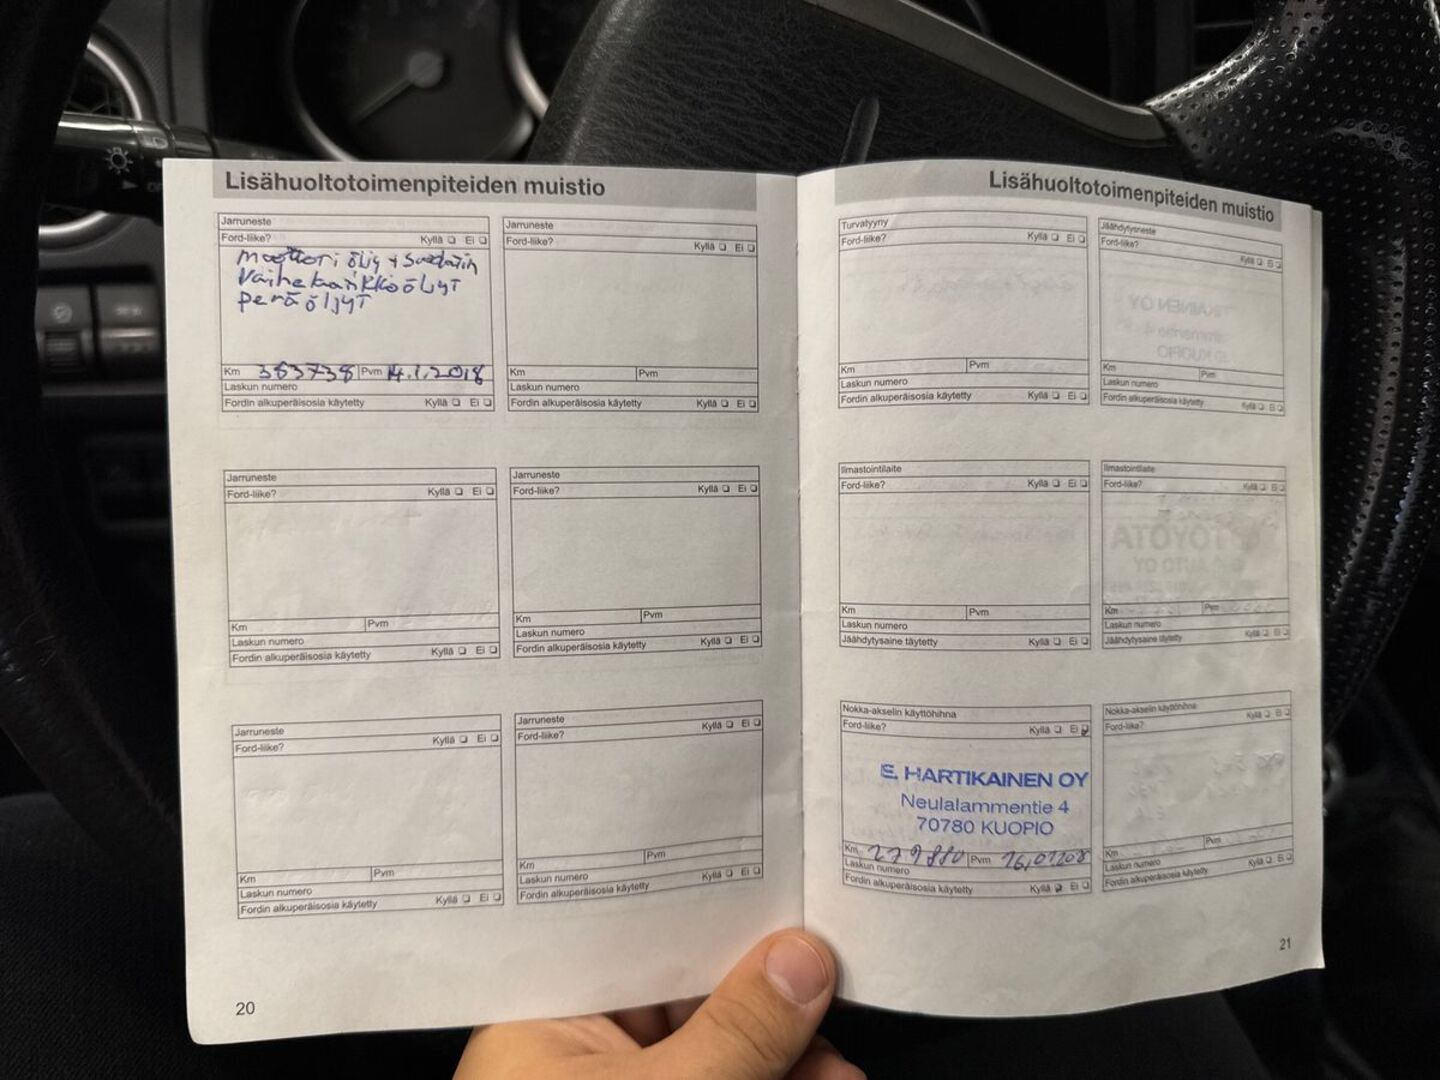 Lisähuoltotoimenpiteiden muistio
Jarruneste
Ford-liike? Kyllä ❏ Ei ❏
moottori öljy + suodatin
Vaihelaatikko öljyt
perä öljyt
Km 383738 Pvm 14.1.2018
Laskun numero
Fordin alkuperäisosia käytetty Kyllä ❏ Ei ❏
Jarruneste
Ford-liike? Kyllä ❏ Ei ❏
Km Pvm
Laskun numero
Fordin alkuperäisosia käytetty Kyllä ❏ Ei ❏
Jarruneste
Ford-liike? Kyllä ❏ Ei ❏
Km Pvm
Laskun numero
Fordin alkuperäisosia käytetty Kyllä ❏ Ei ❏
Jarruneste
Ford-liike? Kyllä ❏ Ei ❏
Km Pvm
Laskun numero
Fordin alkuperäisosia käytetty Kyllä ❏ Ei ❏
Jarruneste
Ford-liike? Kyllä ❏ Ei ❏
Km Pvm
Laskun numero
Fordin alkuperäisosia käytetty Kyllä ❏ Ei ❏
Jarruneste
Ford-liike? Kyllä ❏ Ei ❏
Km Pvm
Laskun numero
Fordin alkuperäisosia käytetty Kyllä ❏ Ei ❏
20
Lisähuoltotoimenpiteiden muistio
Turvatyyny
Ford-liike? Kyllä ❏ Ei ❏
Km Pvm
Laskun numero
Fordin alkuperäisosia käytetty Kyllä ❏ Ei ❏
Jäähdytysneste
Ford-liike? Kyllä ❏ Ei ❏
Km Pvm
Laskun numero
Fordin alkuperäisosia käytetty Kyllä ❏ Ei ❏
Ilmastointilaite
Ford-liike? Kyllä ❏ Ei ❏
Km Pvm
Laskun numero
Jäähdytysaine täytetty Kyllä ❏ Ei ❏
Ilmastointilaite
Ford-liike? Kyllä ❏ Ei ❏
Km Pvm
Laskun numero
Jäähdytysaine täytetty Kyllä ❏ Ei ❏
Nokka-akselin käyttöhihna
Ford-liike? Kyllä ❏ Ei ❏
E. HARTIKAINEN OY
Neulalammentie 4
70780 KUOPIO
Km 279880 Pvm
Laskun numero
Fordin alkuperäisosia käytetty Kyllä ❏ Ei ❏
Nokka-akselin käyttöhihna
Ford-liike? Kyllä ❏ Ei ❏
Km Pvm
Laskun numero
Fordin alkuperäisosia käytetty Kyllä ❏ Ei ❏
21